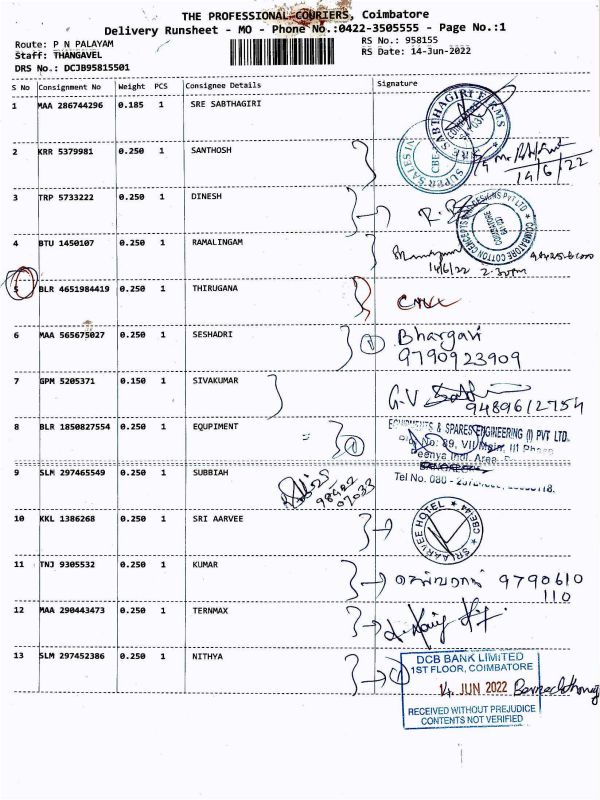 THE PROFESSIONAL COURIERS, Coimbatore
Delivery Runsheet - MO - Phone No.:0422-3505555 - Page No.:1
Route: P N PALAYAM
RS No.: 958155
Staff: THANGAVEL
RS Date: 14-Jun-2022
DRS No.: DCJB95815501
S No Consignment No Weight PCS Consignee Details Signature
1 MAA 286744296 0.185 1 SRE SABTHAGIRI
2 KRR 5379981 0.250 1 SANTHOSH
14/6/22
3 TRP 5733222 0.250 1 DINESH
4 BTU 1450107 0.250 1 RAMALINGAM
14/6/22
5 BLR 4651984419 0.250 1 THIRUGANA
6 MAA 565675027 0.250 1 SESHADRI
1 Bhargavi
9790923909
7 GPM 5205371 0.150 1 SIVAKUMAR
G.V
9489612754
8 BLR 1850827554 0.250 1 EQUIPMENT
EQUIPMENTS & SPARES ENGINEERING (I) PVT LTD.
No: 89, VII Main, III Phase
Peenya Indl. Area
BANGALORE
Tel No. 080 -
9 SLM 297465549 0.250 1 SUBBIAH
10 KKL 1386268 0.250 1 SRI AARVEE
SRI AARVEE HOTEL
11 TNJ 9305532 0.250 1 KUMAR
9790610
110
12 MAA 290443473 0.250 1 TERNMAX
13 SLM 297452386 0.250 1 NITHYA
DCB BANK LIMITED
1ST FLOOR, COIMBATORE
14 JUN 2022
RECEIVED WITHOUT PREJUDICE
CONTENTS NOT VERIFIED